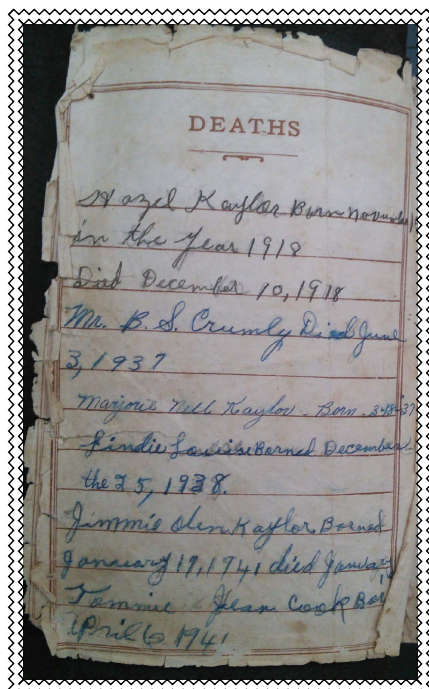 DEATHS
Hazel Kaylor Born November
in the Year 1918
Died December 10, 1918
Mr. B. S. Crumly Died June
3, 1937
Marjorie Nell Kaylor - Born - 3-18-37
Lindie Louise Borned December
the 25, 1938.
Jimmie Olen Kaylor Borned
January 19, 1941 died January
Tommie Jean Cook Bor
April 6 1941